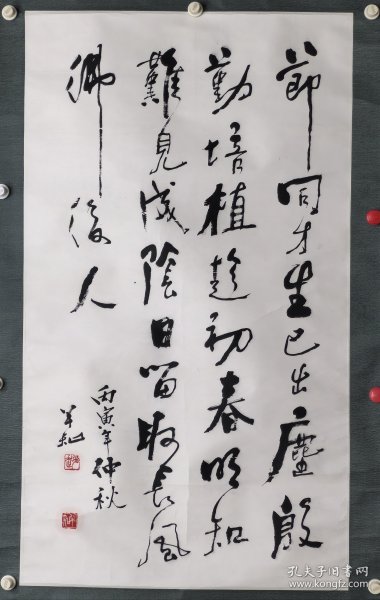 節同才生已出塵殷
勤培植趁初春明知
難見成陰日留取長風
鄉後人
丙寅年仲秋
孔夫子旧书网
www.kongfz.com